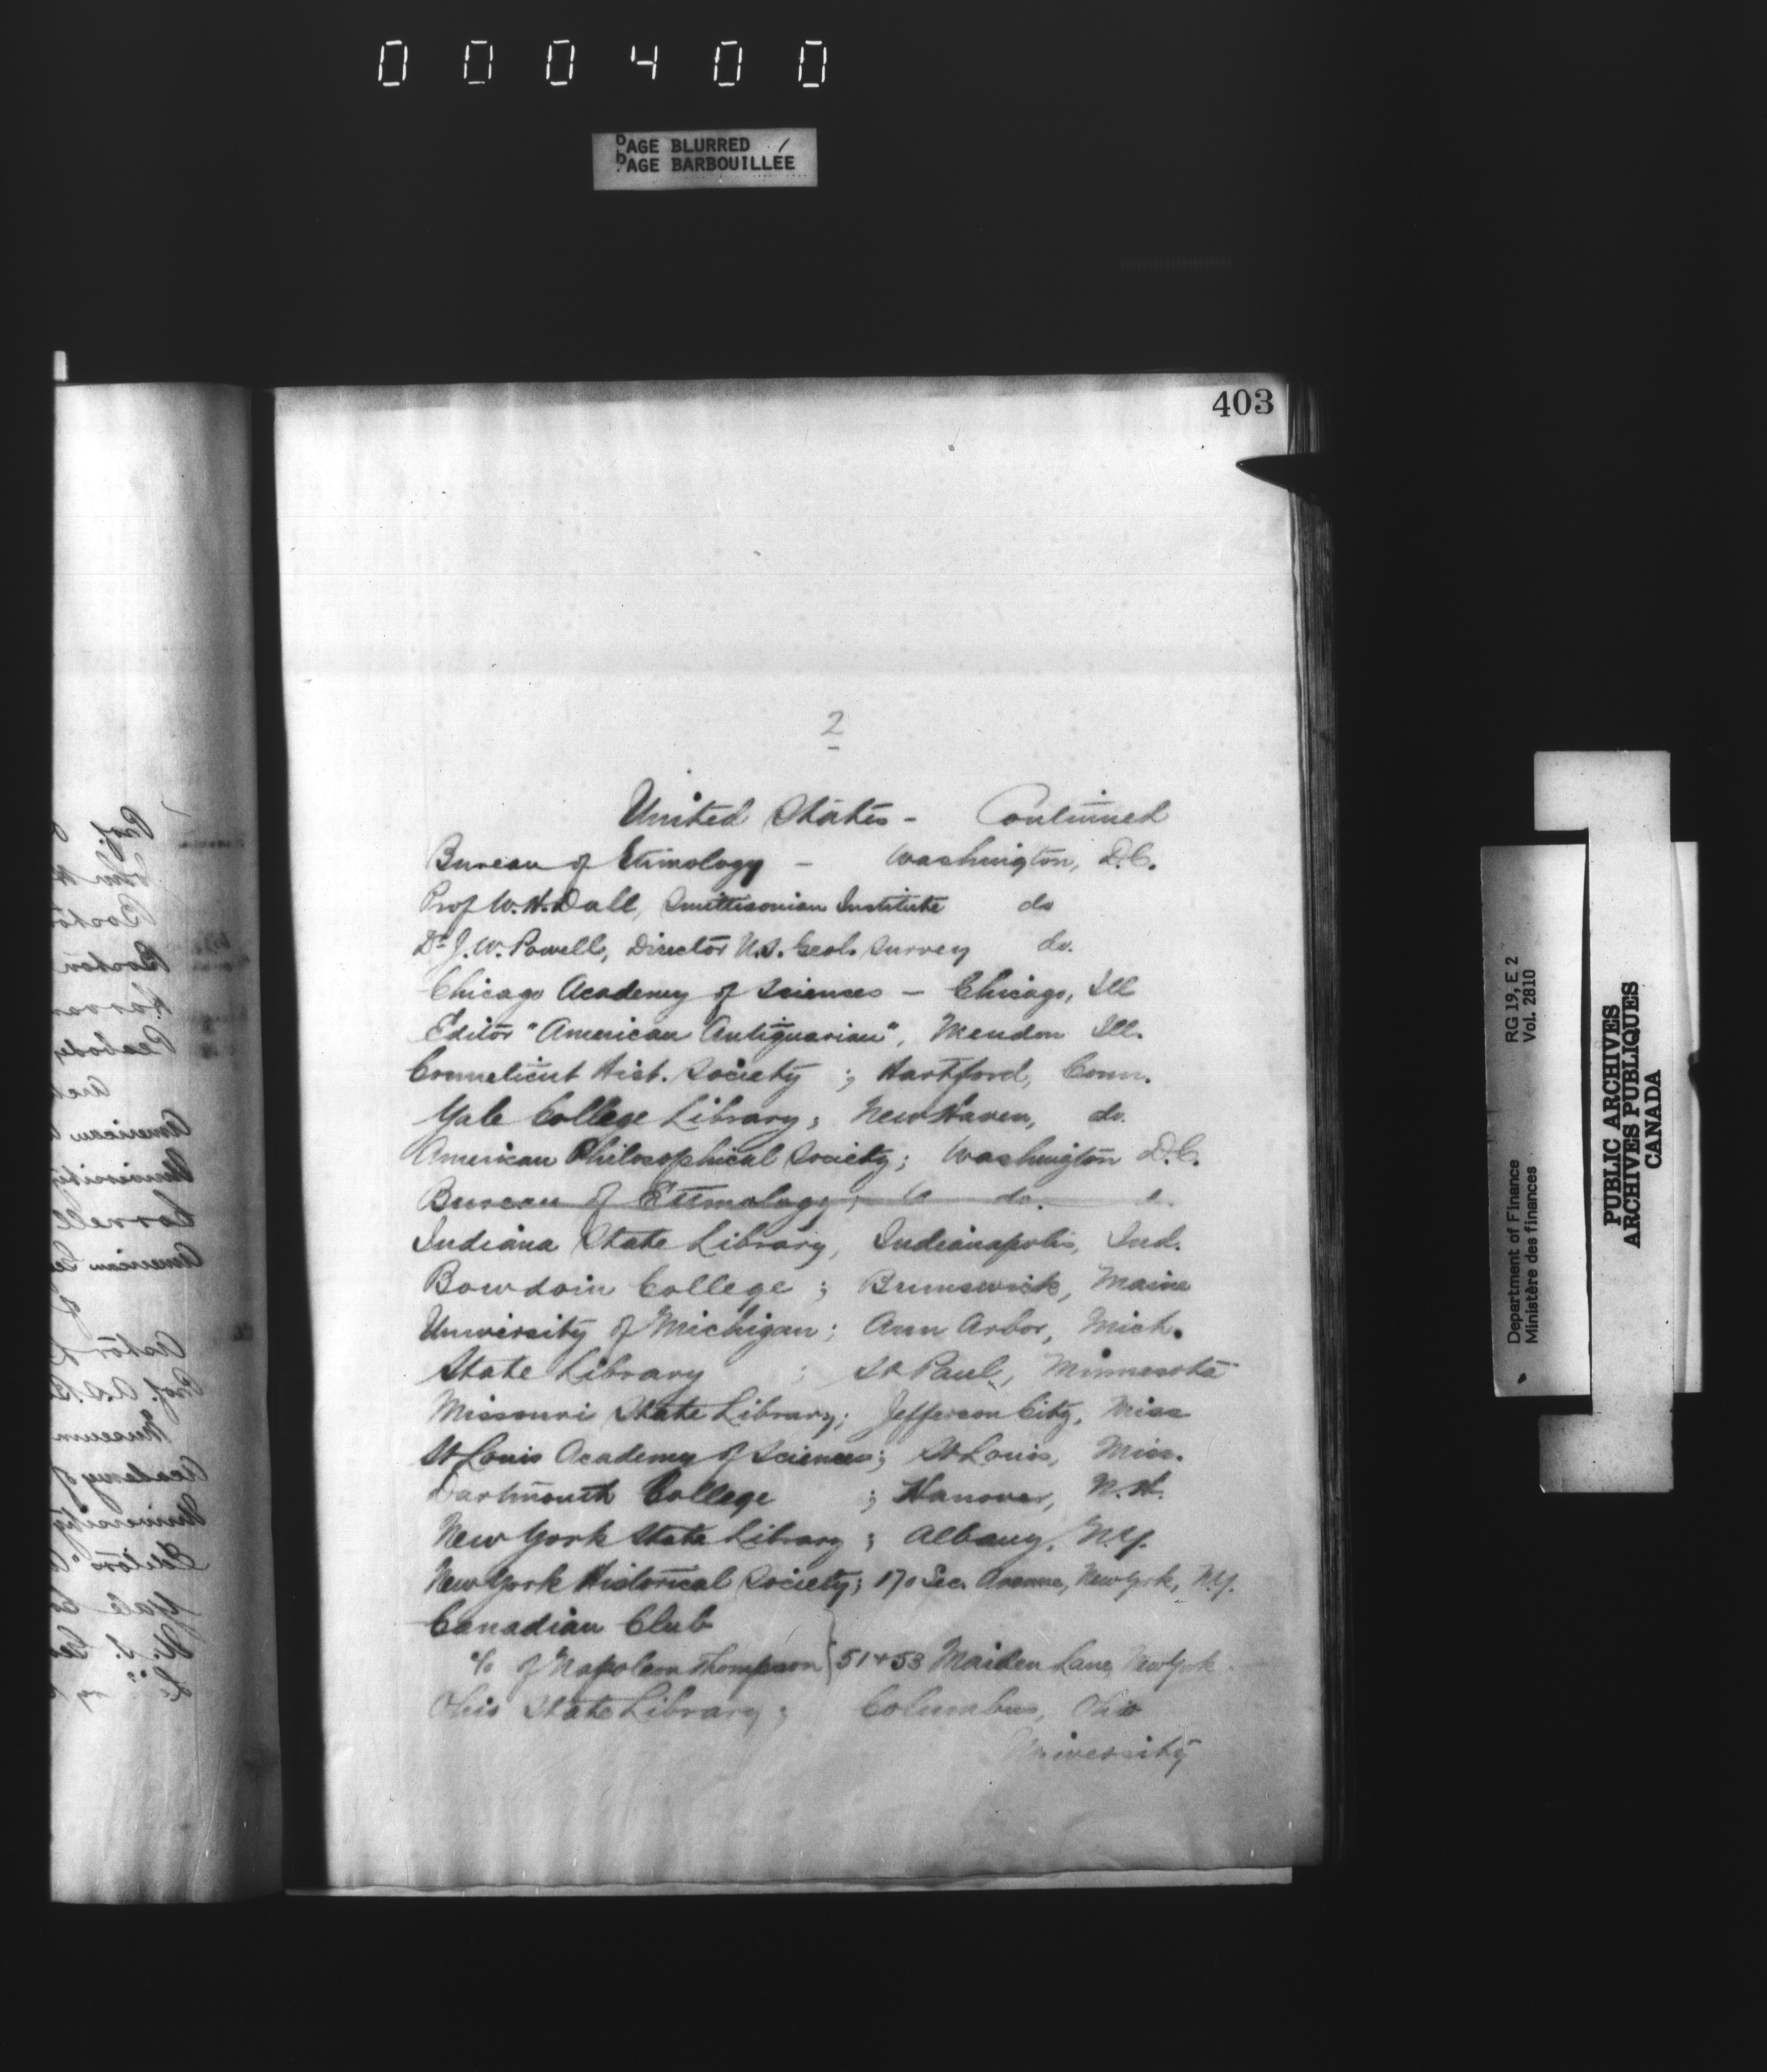 000400
PAGE BLURRED
PAGE BARBOUILLÉE
403
2
United States - Continued
Bureau of Etimology - Washington, D.C.
Prof W.H. Dall, Smittisonian Institute do
Dr J. W. Powell, Director U.S. Geol. Survey do.
Chicago Academy of Sciences - Chicago, Ill
Editor "American Antiquarian", Mendon Ill.
Conneticut Hist. Society ; Hartford, Conn.
Yale College Library; New Haven, do.
American Philosophical Society; Washington D.C.
Bureau of Etimology; do.
Indiana State Library, Indianapolis, Ind.
Bowdoin College ; Brunswick, Maine
University of Michigan; Ann Arbor, Mich.
State Library ; St Paul, Minnesota
Missouri State Library; Jefferson City, Miss
St Louis Academy of Sciences; St Louis, Miss.
Dartmouth College ; Hanover, N.H.
New York State Library ; Albany, N.Y.
New York Historical Society; 170 Sec. Avenue, New York, N.Y.
Canadian Club
c/o of Napoleon Thompson } 51 + 53 Maiden Lane, New York
Ohio State Library ; Columbus, Ohio
University
Department of Finance RG 19, E 2
Ministère des finances Vol. 2810
PUBLIC ARCHIVES
ARCHIVES PUBLIQUES
CANADA